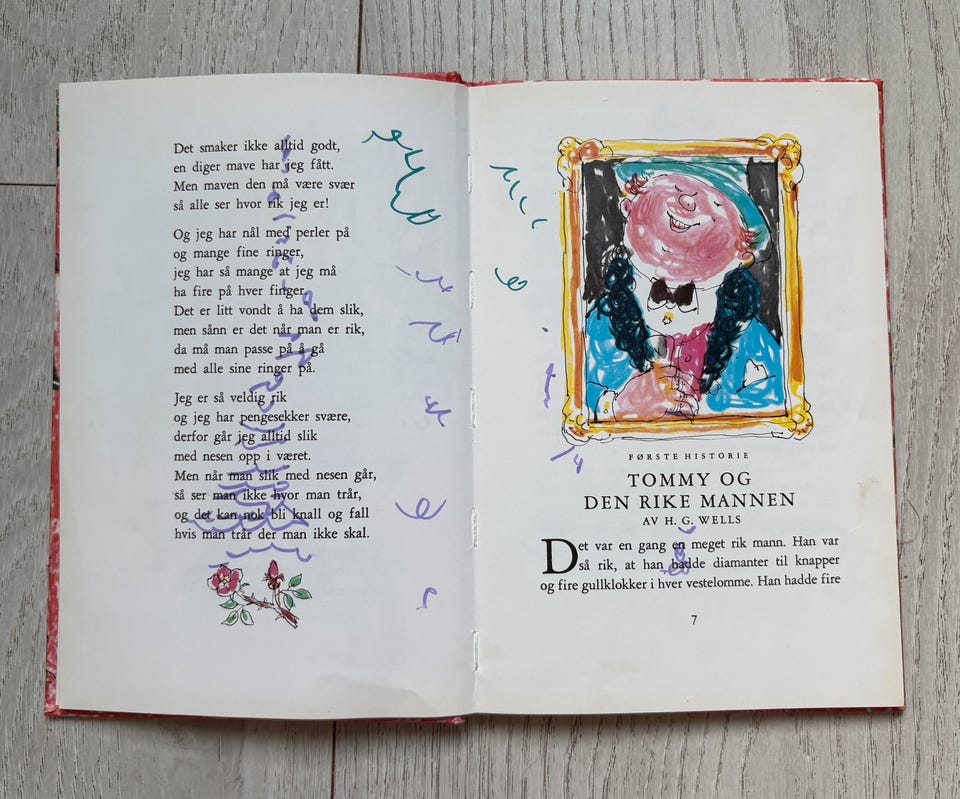 Det smaker ikke alltid godt,
en diger mave har jeg fått.
Men maven den må være svær
så alle ser hvor rik jeg er!
Og jeg har nål med perler på
og mange fine ringer,
jeg har så mange at jeg må
ha fire på hver finger.
Det er litt vondt å ha dem slik,
men sånn er det når man er rik,
da må man passe på å gå
med alle sine ringer på.
Jeg er så veldig rik
og jeg har pengesekker svære,
derfor går jeg alltid slik
med nesen opp i været.
Men når man slik med nesen går,
så ser man ikke hvor man trår,
og det kan nok bli knall og fall
hvis man trår der man ikke skal.
FØRSTE HISTORIE
TOMMY OG
DEN RIKE MANNEN
AV H. G. WELLS
Det var en gang en meget rik mann. Han var
så rik, at han hadde diamanter til knapper
og fire gullklokker i hver vestelomme. Han hadde fire
7